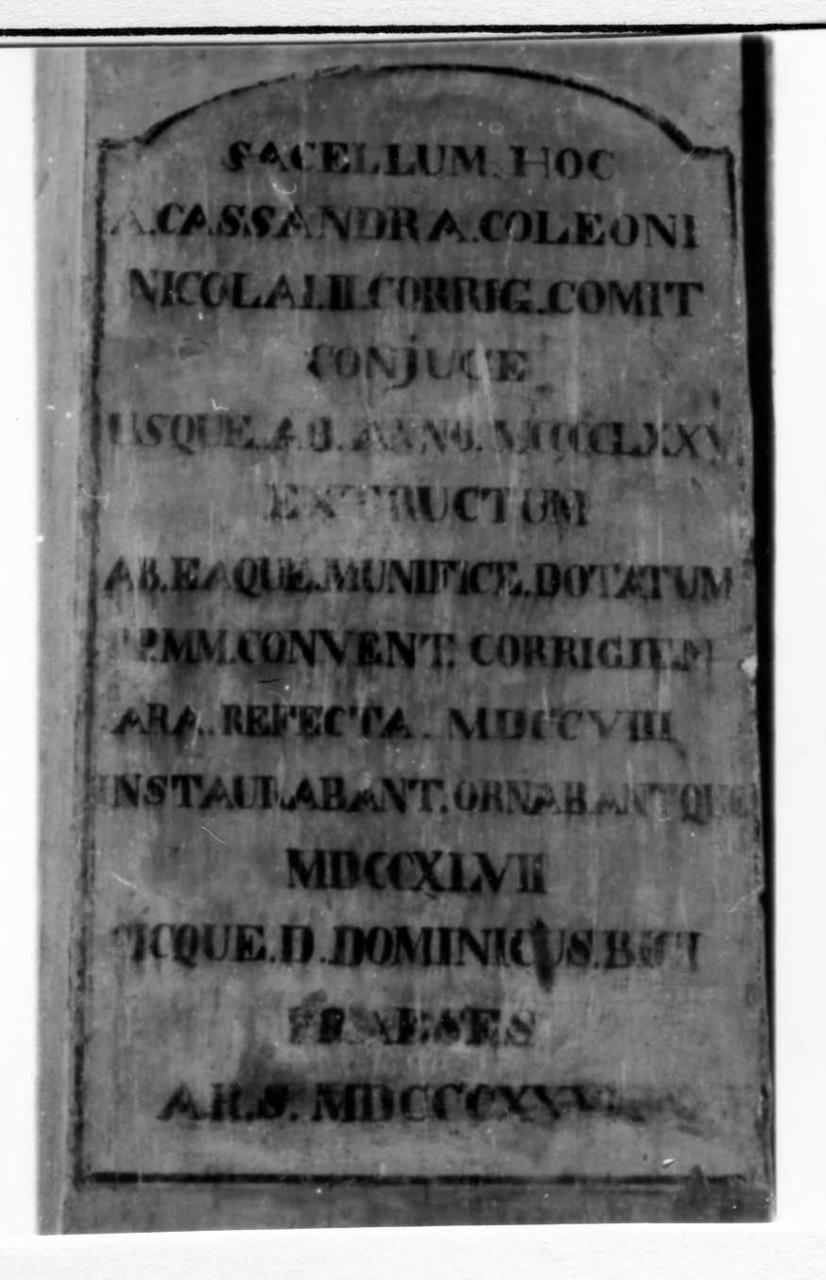 SACELLUM. HOC
A. CASSANDRA. COLEONI
NICOLAI. II. CORRIG. COMIT
CONJUGE
USQUE. AB. ANNO. MCCCCLXXV
EXTRUCTUM
AB. EAQUE. MUNIFICE. DOTATUM
PP. MM. CONVENT. CORRIGIEN
ARA. REFECTA. MDCCVIII
INSTAURABANT. ORNABANTQUE
MDCCXLVII
SICQUE. D. DOMINICUS.
PRAESES
A. R. S.